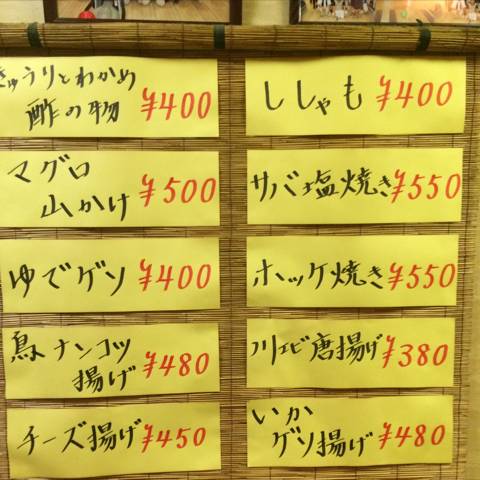 きゅうりとわかめ
酢の物 ¥400
マグロ
山かけ ¥500
ゆでゲソ ¥400
鳥ナンコツ
揚げ ¥480
チーズ揚げ ¥450
ししゃも ¥400
サバ塩焼き ¥550
ホッケ焼き ¥550
川エビ唐揚げ ¥380
いか
ゲソ揚げ ¥480